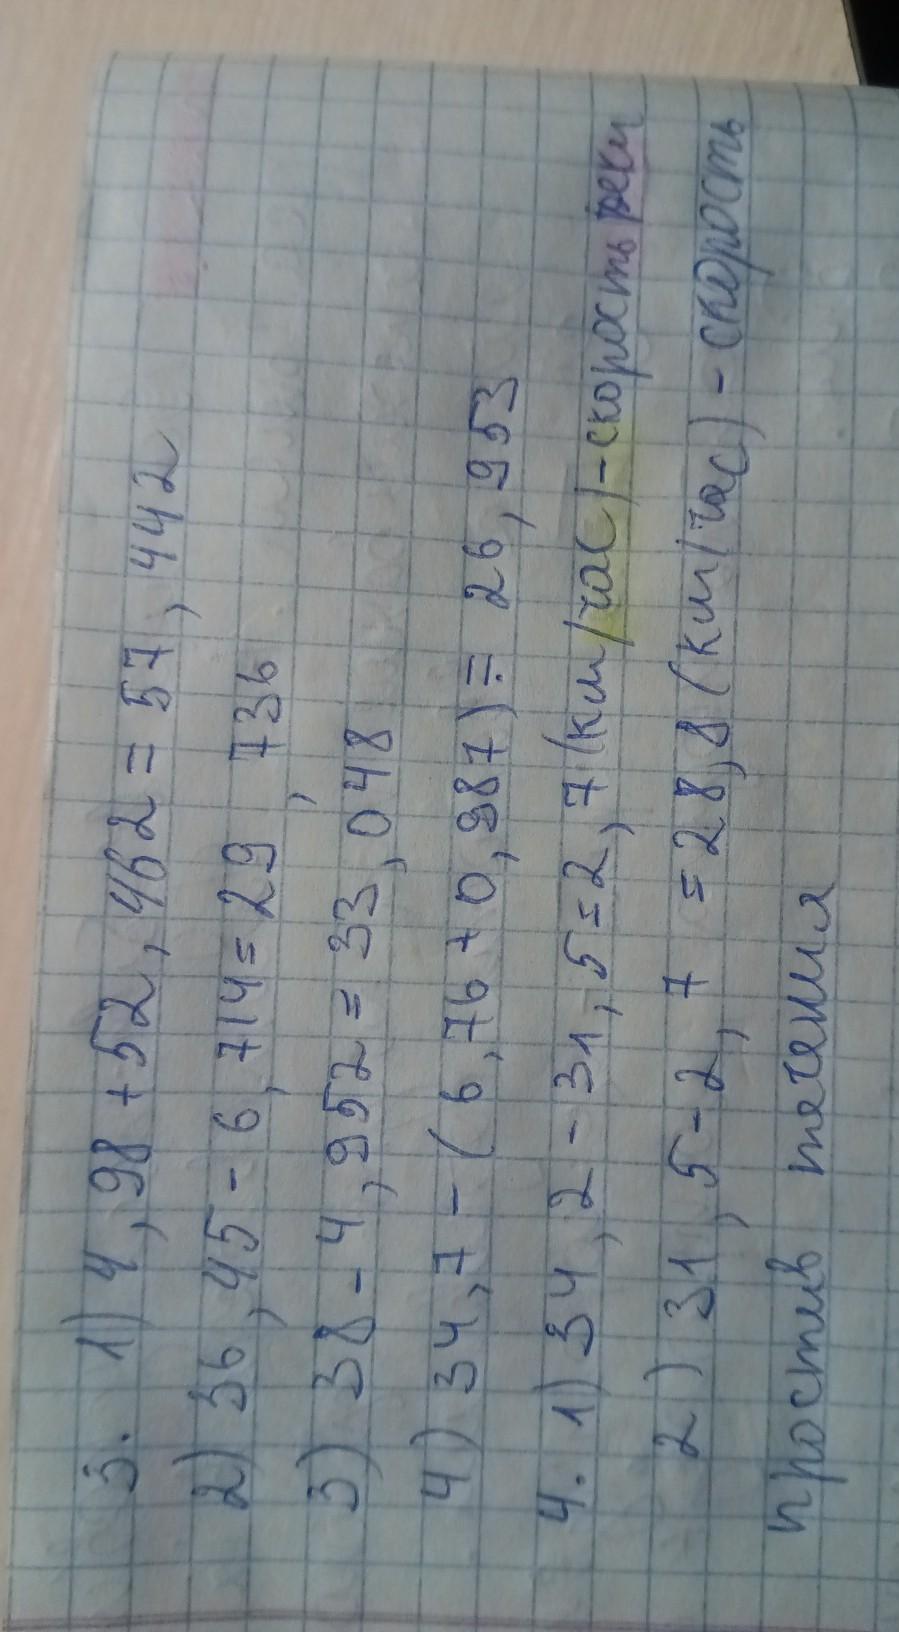 3. 1) 4,98+52,462=57,442
2) 36,45-6,714=29,736
3) 38-4,952=33,048
4) 34,7-(6,76+0,987)=26,953
4. 1) 34,2-31,5=2,7(км/час)-скорость реки
2) 31,5-2,7=28,8(км/час)-скорость
против течения